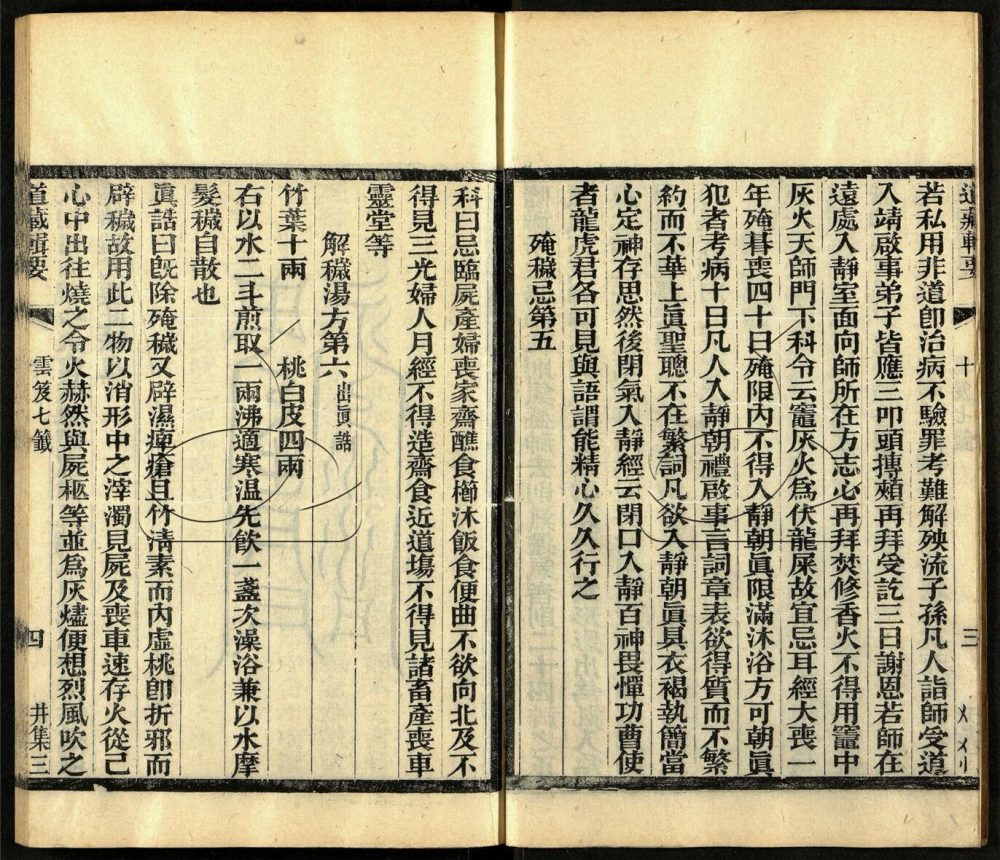 道藏輯要
三
若私用非道卽治病不驗罪考難解殃流子孫凡人詣師受道
入靖啟事弟子皆應三叩頭搏頰再拜受訖三日謝恩若師在
遠處入靜室面向師所在方志心再拜焚修香火不得用竈中
灰火天師門下科令云竈灰火爲伏龍屎故宜忌耳經大喪一
年殗朞喪四十日殗限內不得入靜朝眞限滿沐浴方可朝眞
犯者考病十日凡人入靜朝禮啟事言詞章表欲得質而不繁
約而不華上眞聖聰不在繁詞凡欲入靜朝眞具衣褐執簡當
心定神存思然後閉氣入靜經云閉口入靜百神畏憚功曹使
者龍虎君各可見與語謂能精心久久行之
殗穢忌第五
科曰忌臨屍產婦喪家齋醮食櫛沐飯食便曲不欲向北及不
得見三光婦人月經不得造齋食近道塲不得見諸畜產喪車
靈堂等
解穢湯方第六出眞誥
竹葉十兩 桃白皮四兩
右以水二斗煎取一兩沸適寒温先飲一盞次澡浴兼以水摩
髮穢自散也
眞誥曰旣除殗穢又辟濕痺瘡且竹淸素而內虛桃卽折邪而
辟穢故用此二物以消形中之滓濁見屍及喪車速存火從己
心中出往燒之令火赫然與屍柩等並爲灰燼便想烈風吹之
道藏輯要 雲笈七籤 四 井集三